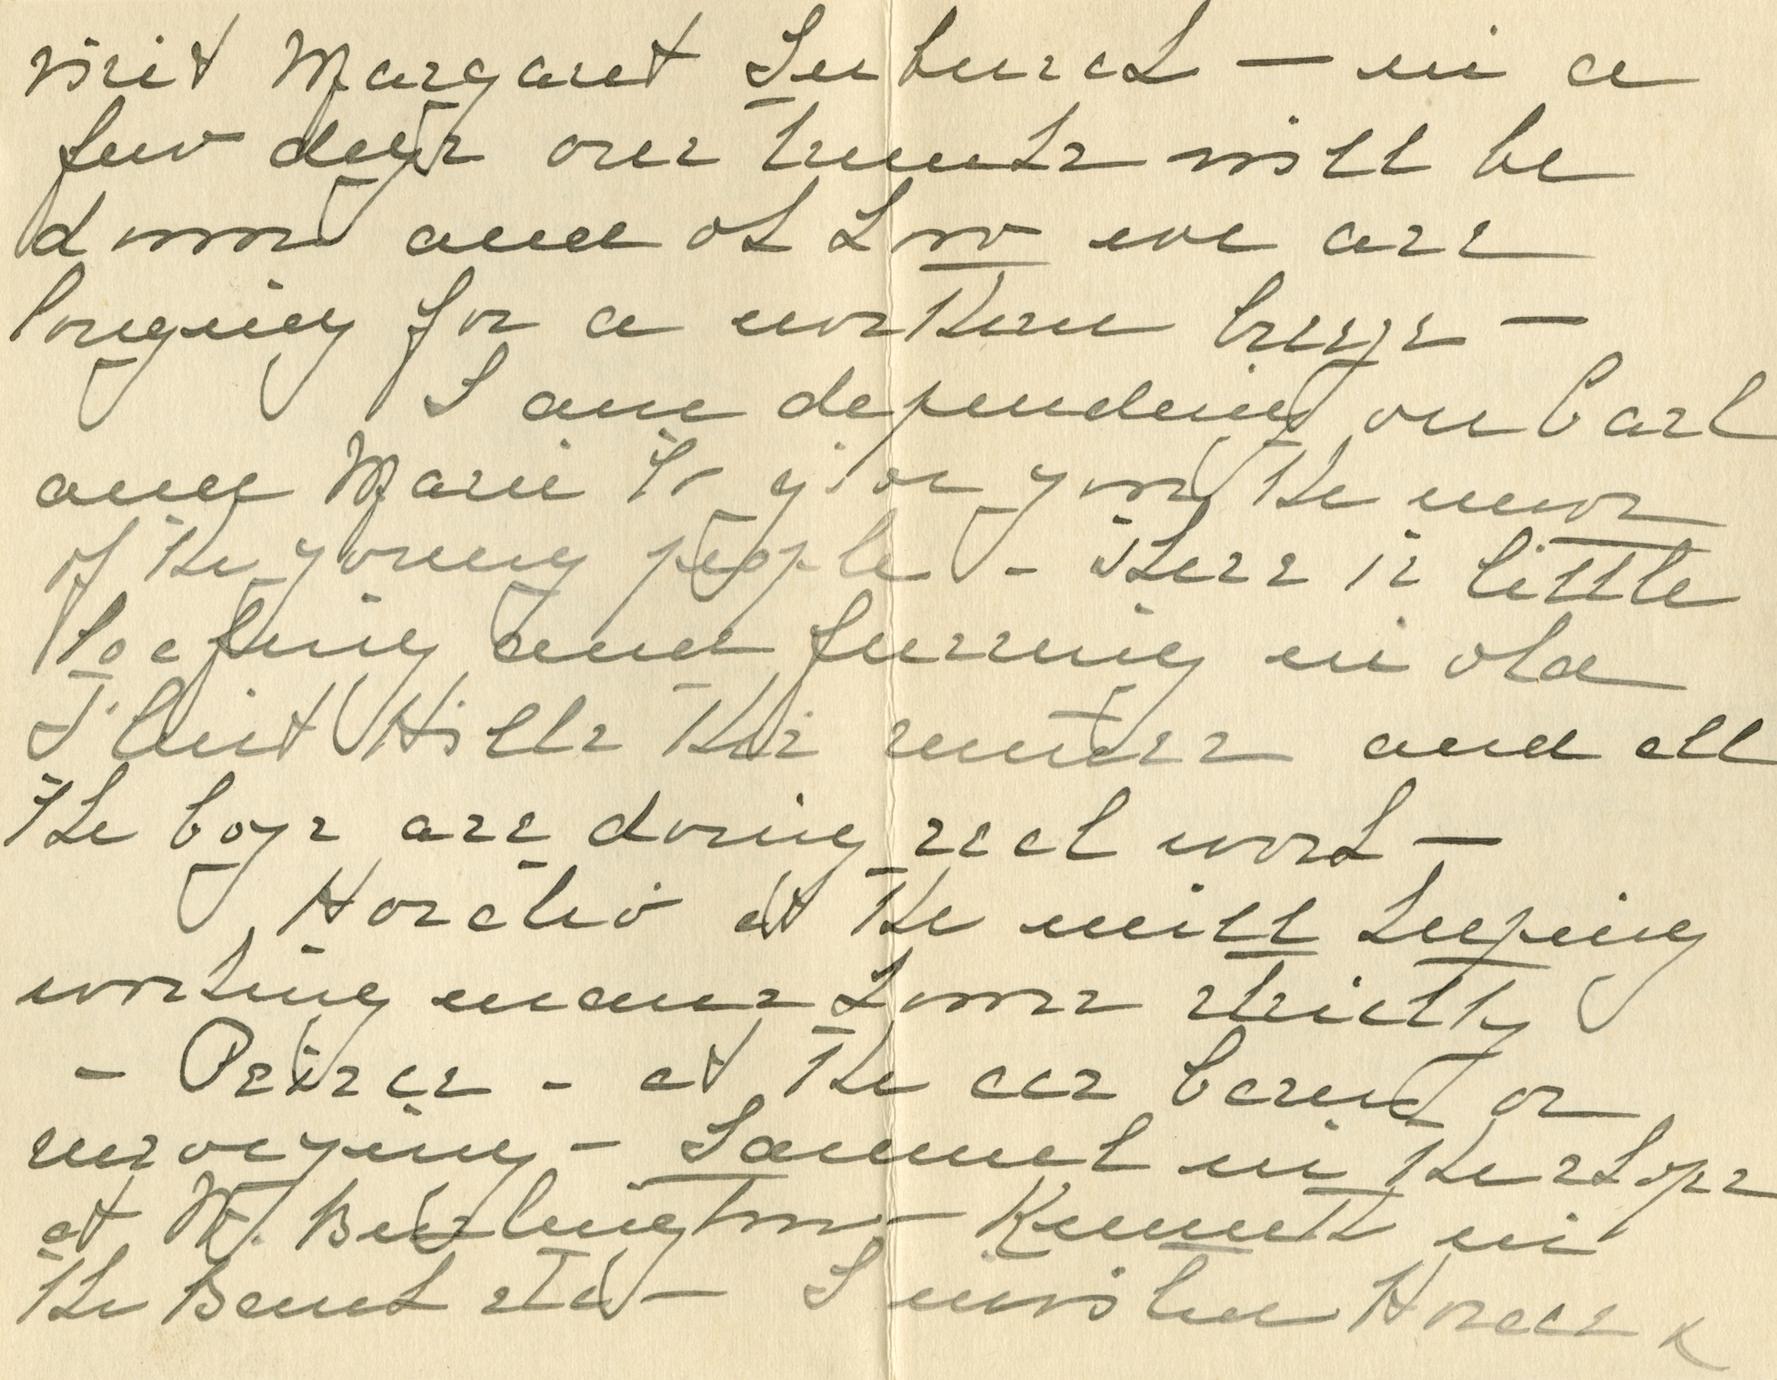 visit Margaret — in a
few days our trunks will be
down and oh how we are
longing for a northern breeze —
I am depending on Carl
and Marie to give you the news
of the young people - There is little
loafing and in old
Flint Hills this summer and all
the boys are doing real work —
Horatio at the mill keeping
working mans hours strictly
- Peirce - at the car barns or
surveying - Samuel in the shops
at W. Burlington - Kenneth in
the Bank etc - Horace &